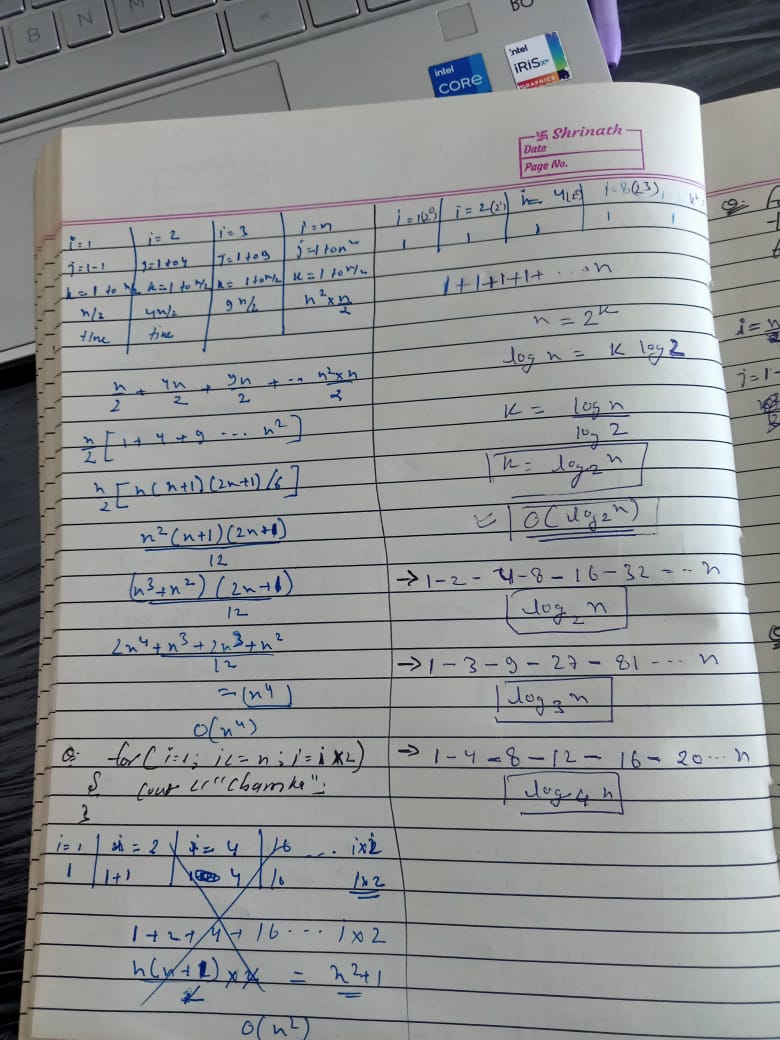 B N M
intel
CORE
intel
iRISxe
GRAPHICS
卐 Shrinath
Date
Page No.
i=1 | i=2 | i=3 | i=n
j=1-1 | j=1 to 4 | j=1 to 9 | j=1 to n²
k=1 to n/2 | k=1 to n/2 | k=1 to n/2 | k=1 to n/2
n/2 | 4n/2 | 9n/2 | n²×n/2
time | time
n/2 + 4n/2 + 9n/2 + ... n²×n/2
n/2 [1+4+9 ... n²]
n/2 [n(n+1)(2n+1)/6]
n²(n+1)(2n+1)
12
(n³+n²)(2n+1)
12
2n⁴+n³+2n³+n²
12
=(n⁴)
O(n⁴)
Q: for(i=1; i<=n; i=i×2)
{ cout <<
}
i=1 | i=2 | i=4 | 16 ... i×2
1 | 1+1 | 4 | 16 1×2
1+2+4+16 ... 1×2
= n²+1
O(n²)
i=1(2⁰) | i=2(2¹) | i=4(2²) | i=8(23)
1 | 1 | 1 | 1 | 1
1+1+1+1+ ... n
n = 2ᵏ
log n = K log 2
K = log n
log 2
K = log₂n
O(log₂n)
→ 1-2-4-8-16-32 -- n
log₂ n
→ 1-3-9-27-81 ... n
log₃ n
→ 1-4-8-12-16-20 ... n
log₄ n
Q:
i=n/2
j=1-